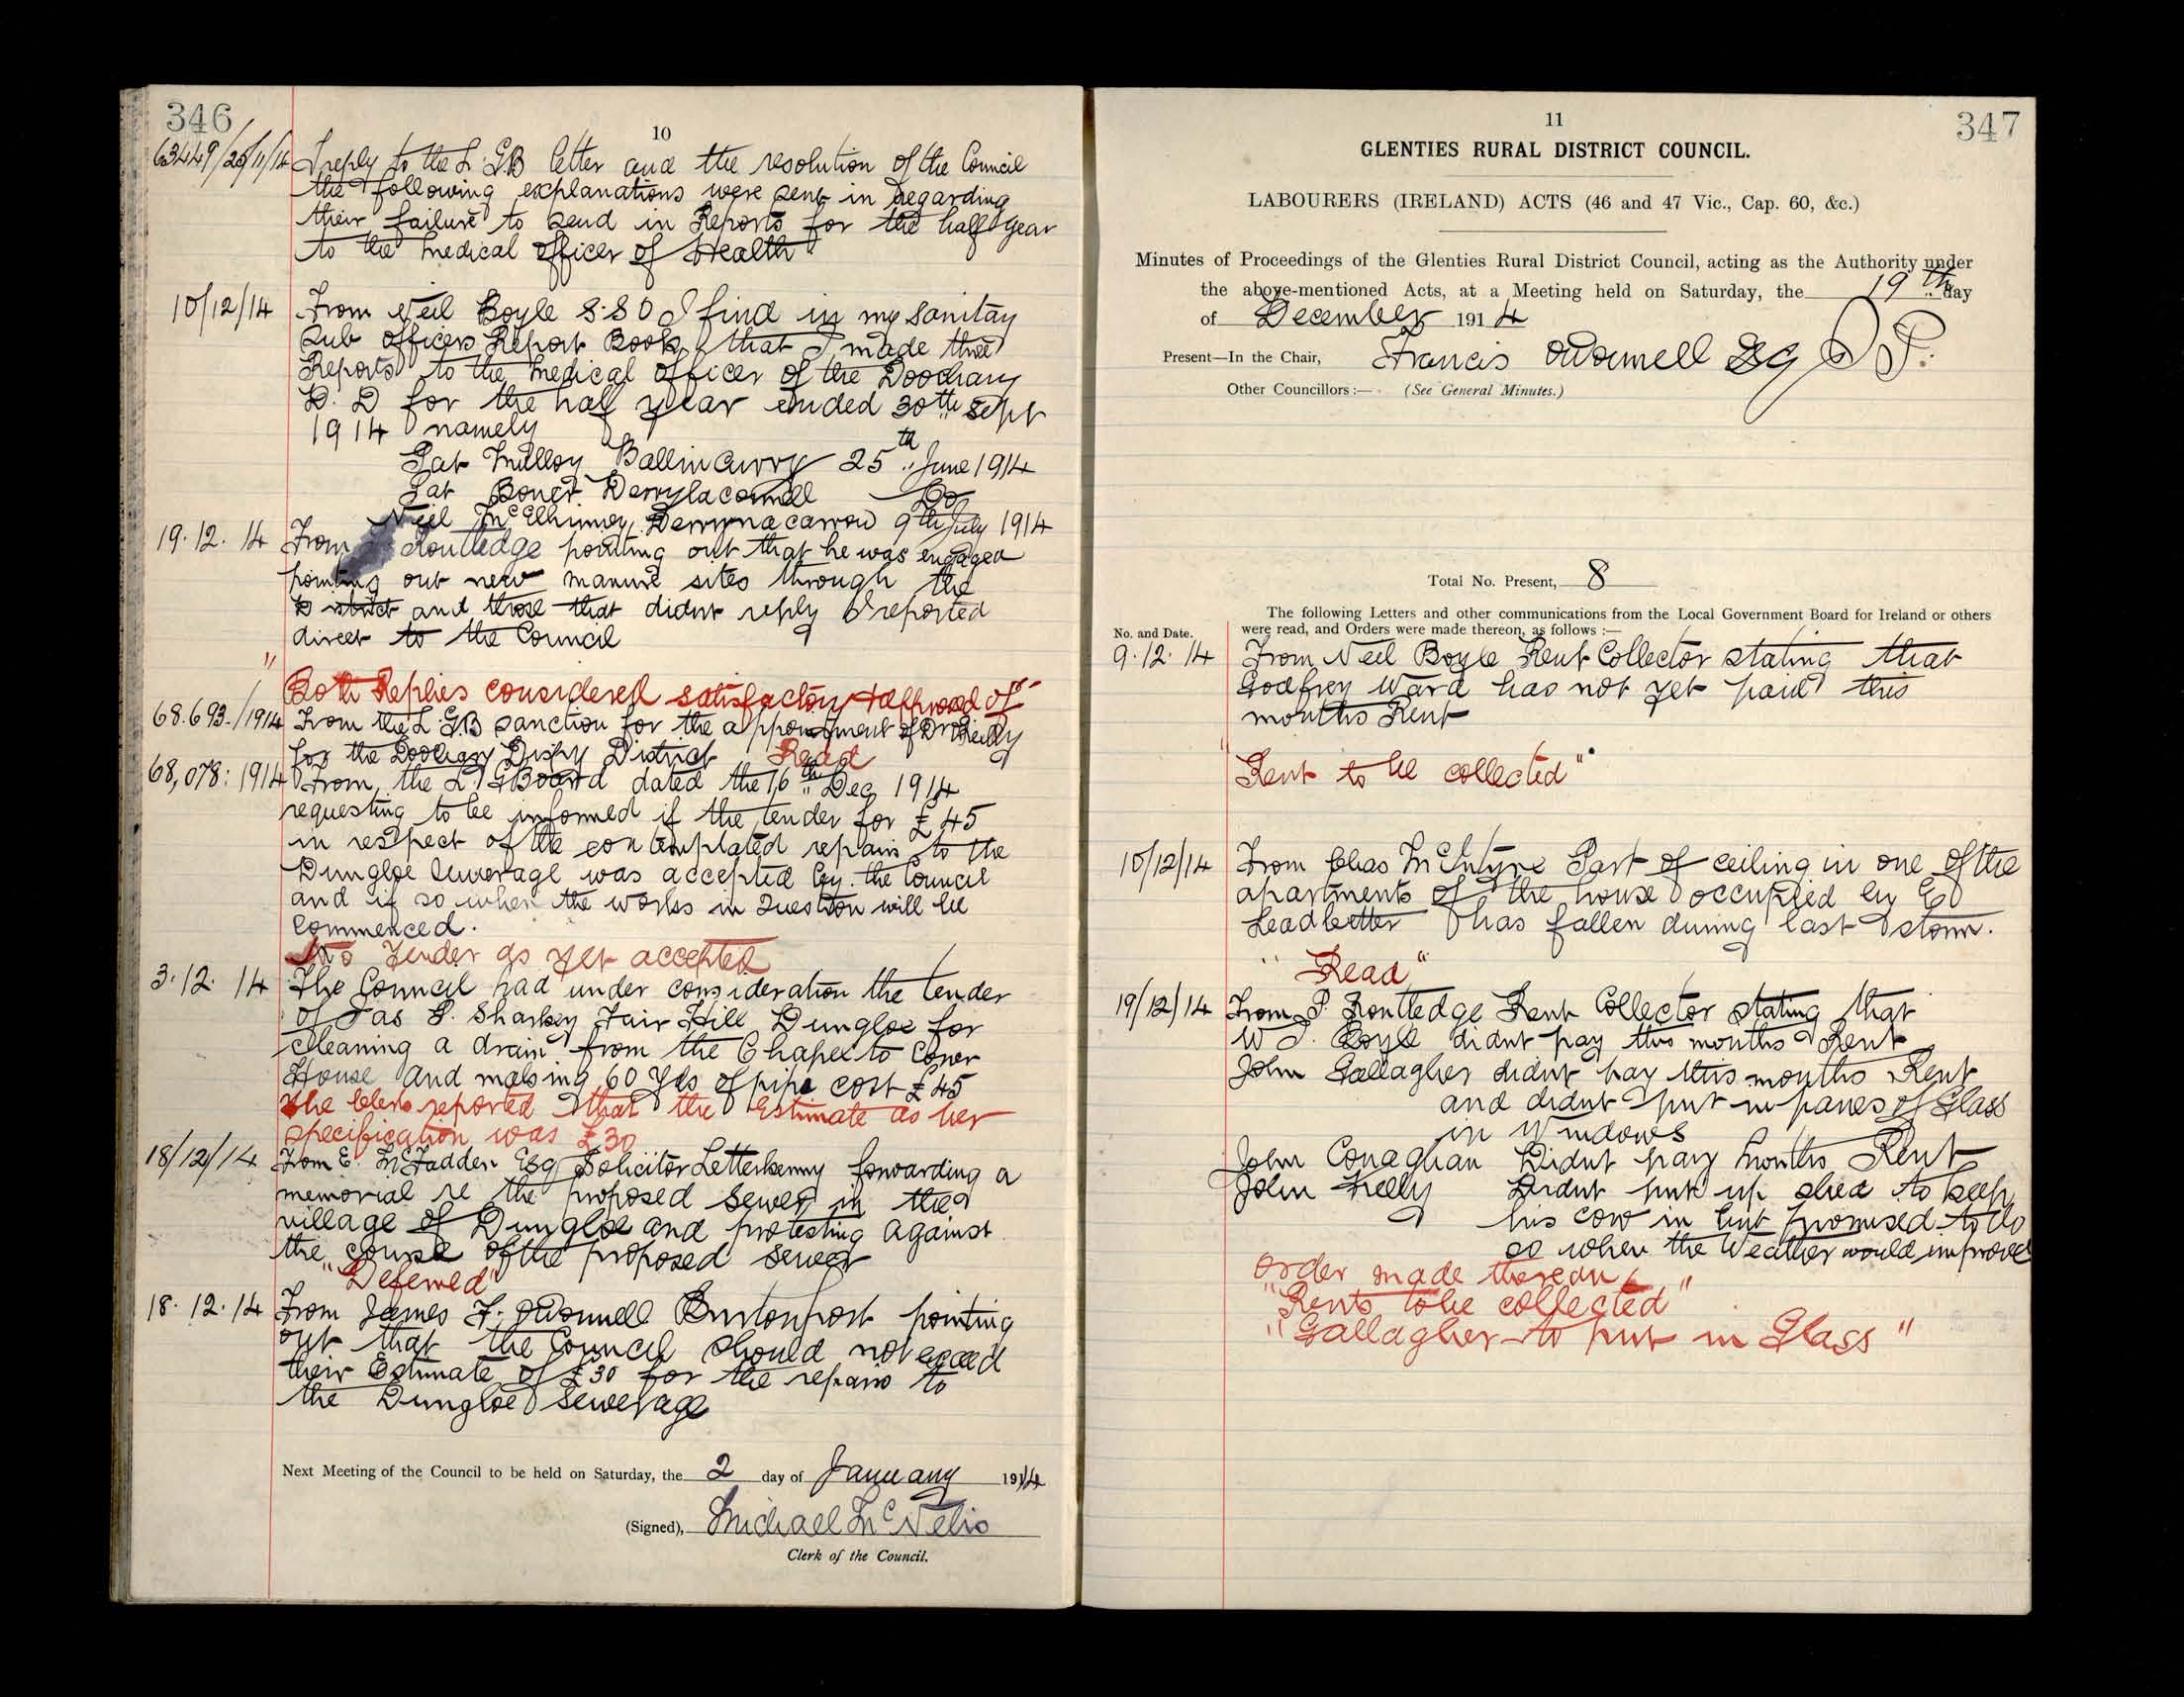 346
10
63449/20/11/14 I reply to the L.G.B letter and the resolution of the Council
the following explanations were sent in regarding
their failure to send in Reports for the half year
to the medical officer of Health
10/12/14 From Neil Boyle S.S O I find in my Sanitay
Sub officers Report Book that I made three
Reports to the medical officer of the Doochary
D. D for the half year ended 30th Sept
1914 namely
Pat Milloy Ballinacurry 25th June 1914
Pat Boner Derrylaconnell Do
Neil McElhinney Derrynacarrow 9th July 1914
19.12.14 From Routledge pointing out that he was engaged
pointing out new manure sites through the
District and those that didnt reply I reported
direct to the Council
"Both Replies considered satisfactory & approved of"
68.693./1914 From the L.G.B sanction for the appointment of Dr Reilly
for the Doochary Dispy District Read
68,078:1914 From the L G Board dated the 16th Dec 1914
requesting to be informed if the tender for £45
in respect of the contemplated repairs to the
Dungloe Sewerage was accepted by the Council
and if so when the works in Question will be
commenced.
No Tender as yet accepted
3.12.14 The Council had under consideration the tender
of Jas P. Sharkey Fair Hill Dungloe for
cleaning a drain from the Chapel to
House and making 60 Yds of pipe cost £45
The Clerk reported that the Estimate as per
specification was £30
18/12/14 From E. McFadden Esq Solicitor Letterkenny forwarding a
memorial re the proposed sewer in the
village of Dungloe and protesting against
the course of the proposed sewer
"Deferred"
18.12.14 From James F. O'Donnell Burtonport pointing
out that the Council should not exceed
their Estimate of £30 for the repairs to
the Dungloe Sewerage
Next Meeting of the Council to be held on Saturday, the 2 day of January 1914
(Signed), Michael McNelis
Clerk of the Council.
11
347
GLENTIES RURAL DISTRICT COUNCIL.
LABOURERS (IRELAND) ACTS (46 and 47 Vic., Cap. 60, &c.)
Minutes of Proceedings of the Glenties Rural District Council, acting as the Authority under
the above-mentioned Acts, at a Meeting held on Saturday, the 19th day
of December 1914
Present—In the Chair, Francis O'Donnell Esq J P.
Other Councillors:— (See General Minutes.)
Total No. Present, 8
The following Letters and other communications from the Local Government Board for Ireland or others
No. and Date. were read, and Orders were made thereon, as follows:—
9.12.14 From Neil Boyle Rent Collector stating that
Godfrey Ward has not yet paid this
months Rent
"Rent to be collected"
10/12/14 From Chas McIntyre Part of ceiling in one of the
apartments of the house occupied by
Leadbetter has fallen during last storm.
"Read"
19/12/14 From P. Routledge Rent Collector stating that
W J. Boyle didnt pay this months Rent
John Gallagher didnt pay this months Rent
and didnt put in panes of Glass
in Windows
John Conaghan Didnt pay months Rent
John Kelly Didnt put up shed to keep
his cow in but promised to do
so when the Weather would improve
Order made thereon
"Rents to be collected"
"Gallagher to put in Glass"